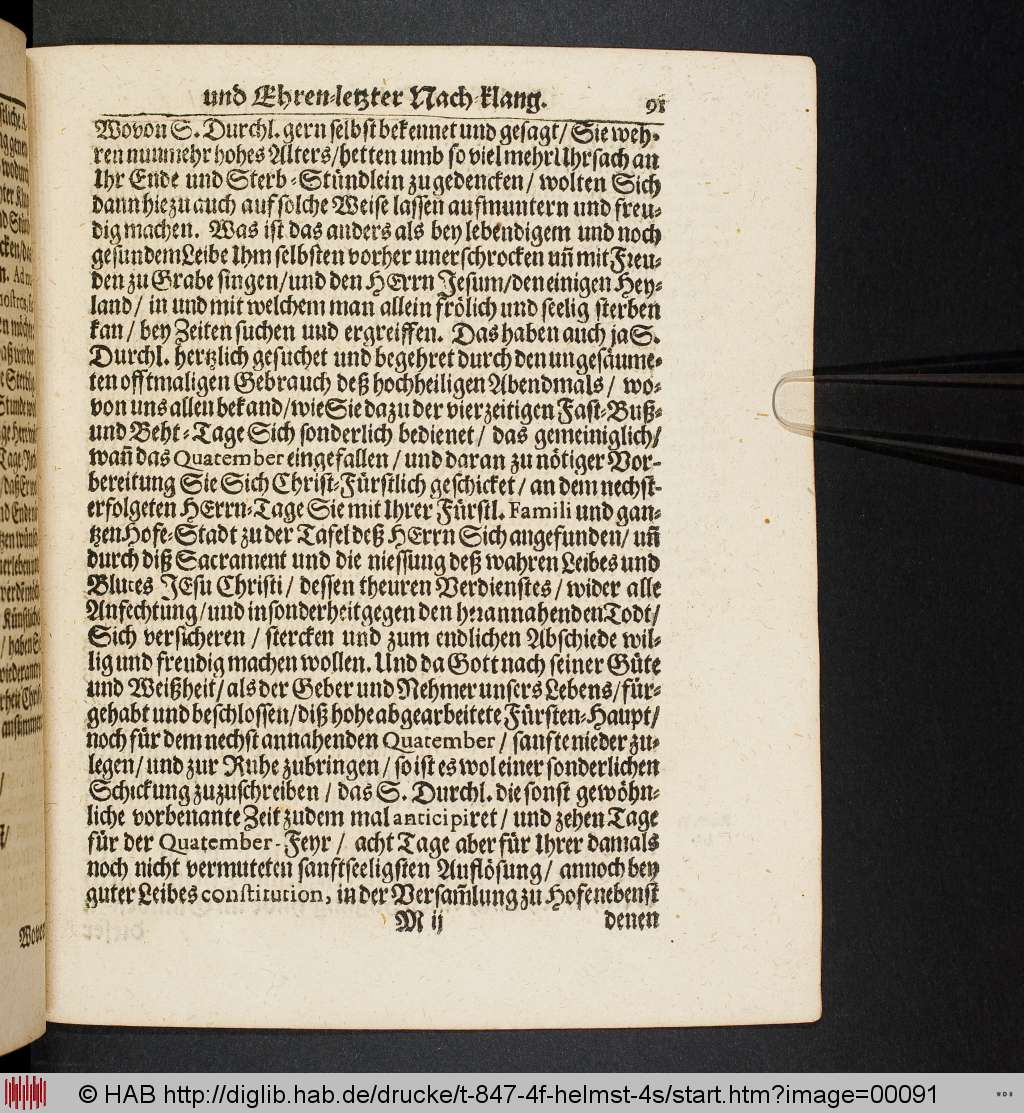 und Ehren-letzter Nach-klang. 91
Wovon S. Durchl. gern selbst bekennet und gesagt/ Sie weh-
ren nunmehr hohes Alters/hetten umb so viel mehr Uhrsach an
Ihr Ende und Sterb-Stündlein zu gedencken/ wolten Sich
dann hiezu auch auf solche Weise lassen aufmuntern und freu-
dig machen. Was ist das anders als bey lebendigem und noch
gesundem Leibe Ihm selbsten vorher unerschrocken uñ mit Freu-
den zu Grabe singen/und den HErrn Jesum/den einigen Hey-
land/ in und mit welchem man allein frölich und seelig sterben
kan/ bey Zeiten suchen und ergreiffen. Das haben auch ja S.
Durchl. hertzlich gesuchet und begehret durch den ungesäume-
ten offtmaligen Gebrauch deß hochheiligen Abendmals/ wo-
von uns allen bekand/wie Sie dazu der vierzeitigen Fast-Buß-
und Beht-Tage Sich sonderlich bedienet/ das gemeiniglich/
wañ das Quatember eingefallen/und daran zu nötiger Vor-
bereitung Sie Sich Christ-Fürstlich geschicket/ an dem nechst-
erfolgeten HErrn-Tage Sie mit Ihrer Fürstl. Famili und gan-
tzen Hofe-Stadt zu der Tafel deß HErrn Sich angefunden/ uñ
durch diß Sacrament und die niessung deß wahren Leibes und
Blutes JEsu Christi/ dessen theuren Verdienstes/ wider alle
Anfechtung/und insonderheit gegen den herannahenden Todt/
Sich versicheren/ stercken und zum endlichen Abschiede wil-
lig und freudig machen wollen. Und da Gott nach seiner Güte
und Weißheit/als der Geber und Nehmer unsers Lebens/für-
gehabt und beschlossen/diß hohe abgearbeitete Fürsten-Haupt/
noch für dem nechst annahenden Quatember/ sanfte nieder zu-
legen/und zur Ruhe zubringen/so ist es wol einer sonderlichen
Schickung zuzuschreiben/ das S. Durchl. die sonst gewöhn-
liche vorbenante Zeit zudem mal anticipiret/ und zehen Tage
für der Quatember-Feyr/ acht Tage aber für Ihrer damals
noch nicht vermuteten sanftseeligsten Auflösung/ annoch bey
guter Leibes constitution, in der Versam̃lung zu Hofe nebenst
M ij denen
© HAB http://diglib.hab.de/drucke/t-847-4f-helmst-4s/start.htm?image=00091